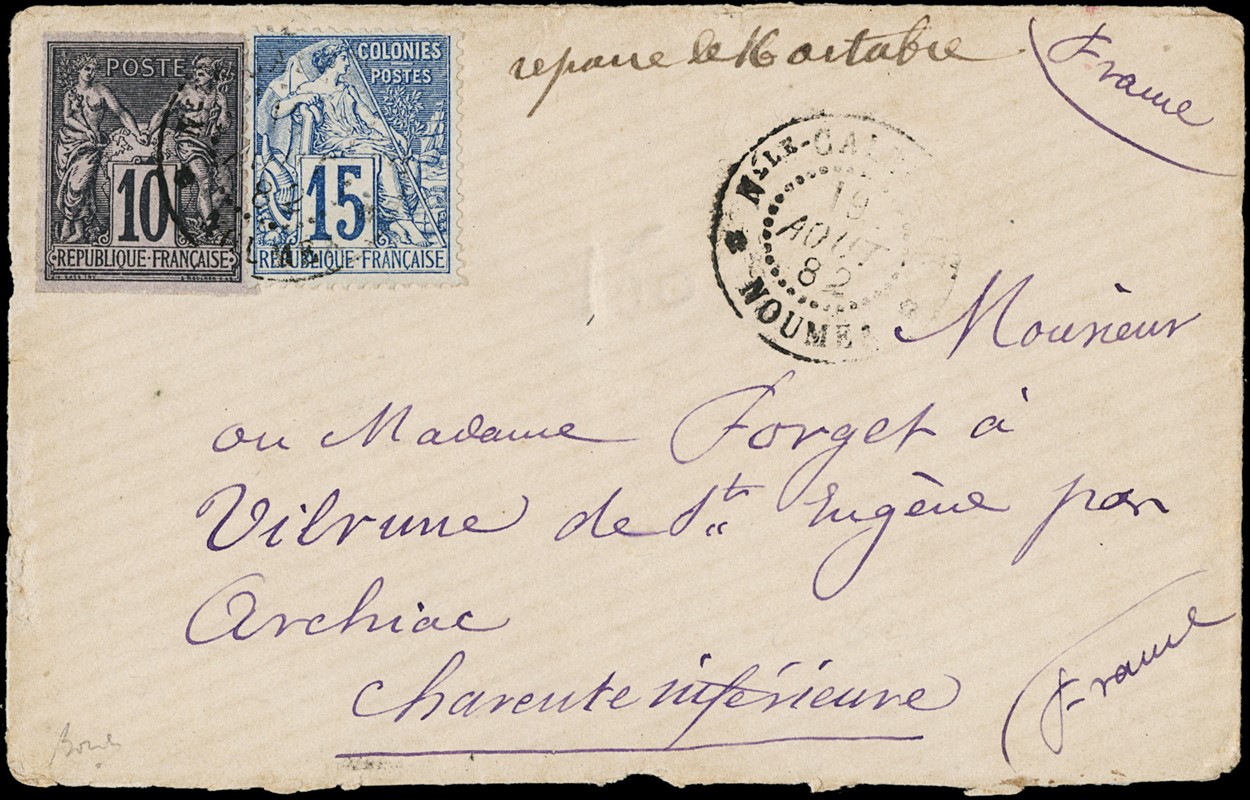 POSTE
10
RÉPUBLIQUE FRANÇAISE
COLONIES
POSTES
15
RÉPUBLIQUE FRANÇAISE
le 16 octobre
France
Nlle-CAL
19
AOUT
82
NOUMEA
Monsieur
ou Madame Forget à
Vilrune de St Eugène par
Archiac
charente inférieure
France